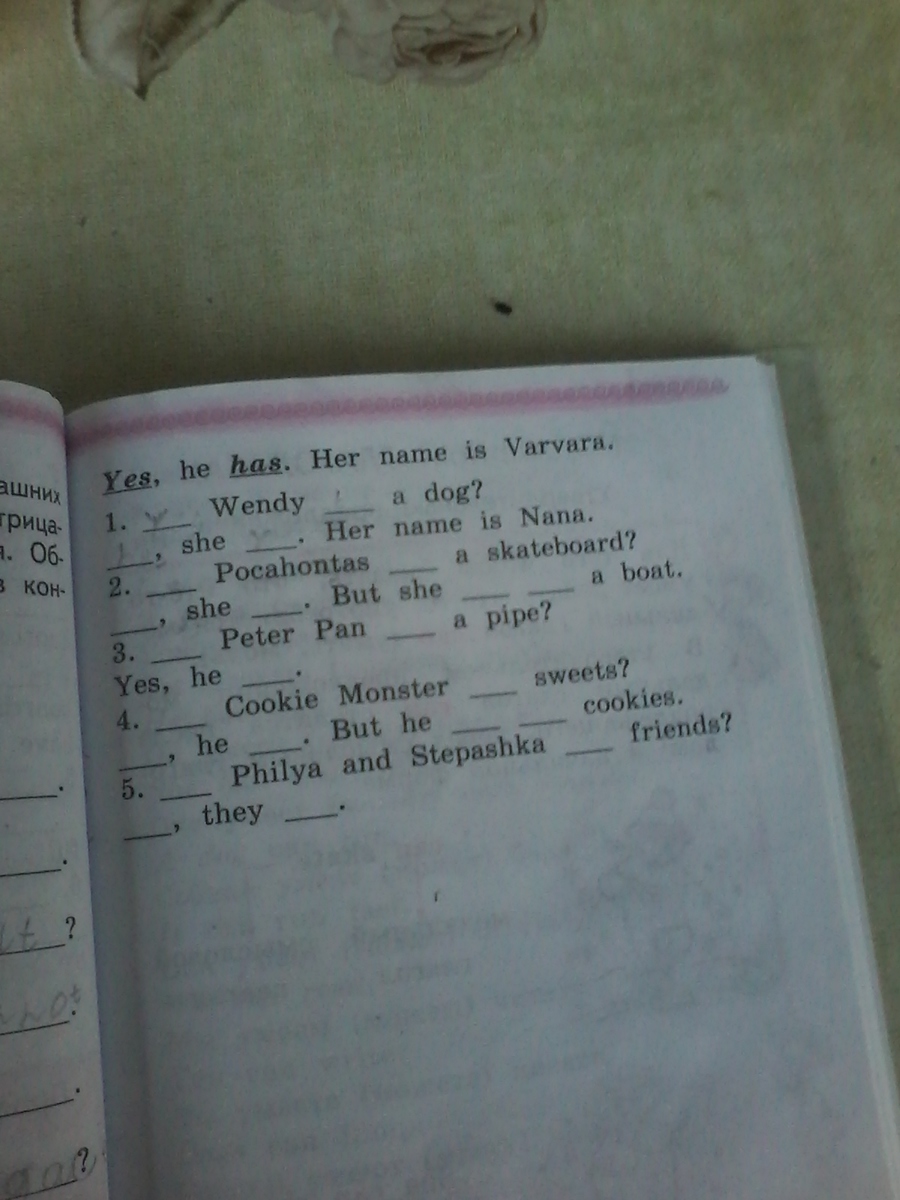 ашних
трица-
. Об-
в кон-
Yes, he has. Her name is Varvara.
1. ___ Wendy ___ a dog?
___, she ___. Her name is Nana.
2. ___ Pocahontas ___ a skateboard?
___, she ___. But she ___ ___ a boat.
3. ___ Peter Pan ___ a pipe?
Yes, he ___.
4. ___ Cookie Monster ___ sweets?
___, he ___. But he ___ ___ cookies.
5. ___ Philya and Stepashka ___ friends?
___, they ___.